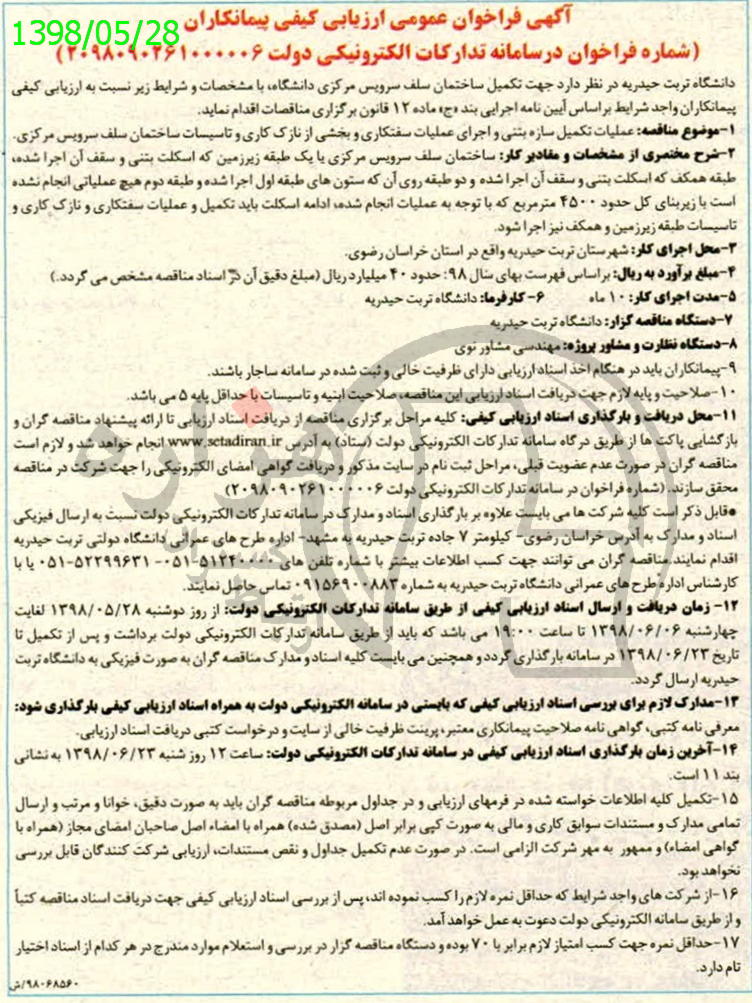 آگهی فراخوان عمومی ارزیابی کیفی پیمانکاران
1398/05/28
(شماره فراخوان در سامانه تدارکات الکترونیکی دولت ۲۰۹۸۰۹۰۲۶۱۰۰۰۰۰۶)
دانشگاه تربت حیدریه در نظر دارد جهت تکمیل ساختمان سلف سرویس مرکزی دانشگاه، با مشخصات و شرایط زیر نسبت به ارزیابی کیفی
پیمانکاران واجد شرایط براساس آیین نامه اجرایی بند «ج» ماده ۱۲ قانون برگزاری مناقصات اقدام نماید.
۱-موضوع مناقصه: عملیات تکمیل سازه بتنی و اجرای عملیات سفتکاری و بخشی از نازک کاری و تاسیسات ساختمان سلف سرویس مرکزی.
۲-شرح مختصری از مشخصات و مقادیر کار: ساختمان سلف سرویس مرکزی با یک طبقه زیرزمین که اسکلت بتنی و سقف آن اجرا شده،
طبقه همکف که اسکلت بتنی و سقف آن اجرا شده و دو طبقه روی آن که ستون های طبقه اول اجرا شده و طبقه دوم هیچ عملیاتی انجام نشده
است با زیربنای کل حدود ۴۵۰۰ مترمربع که با توجه به عملیات انجام شده، ادامه اسکلت باید تکمیل و عملیات سفتکاری و نازک کاری و
تاسیسات طبقه زیرزمین و همکف نیز اجرا شود.
۳-محل اجرای کار: شهرستان تربت حیدریه واقع در استان خراسان رضوی.
۴-مبلغ برآورد به ریال: براساس فهرست بهای سال ۹۸: حدود ۴۰ میلیارد ریال (مبلغ دقیق آن در اسناد مناقصه مشخص می گردد.)
۵-مدت اجرای کار: ۱۰ ماه ۶- کارفرما: دانشگاه تربت حیدریه
۷-دستگاه مناقصه گزار: دانشگاه تربت حیدریه
۸-دستگاه نظارت و مشاور پروژه: مهندسی مشاور نوی
۹-پیمانکاران باید در هنگام اخذ اسناد ارزیابی دارای ظرفیت خالی و ثبت شده در سامانه ساجار باشند.
۱۰-صلاحیت و پایه لازم جهت دریافت اسناد ارزیابی این مناقصه، صلاحیت ابنیه و تاسیسات با حداقل پایه ۵ می باشد.
۱۱-محل دریافت و بارگذاری اسناد ارزیابی کیفی: کلیه مراحل برگزاری مناقصه از دریافت اسناد ارزیابی تا ارائه پیشنهاد مناقصه گران و
بازگشایی پاکت ها از طریق درگاه سامانه تدارکات الکترونیکی دولت (ستاد) به آدرس www.setadiran.ir انجام خواهد شد و لازم است
مناقصه گران در صورت عدم عضویت قبلی، مراحل ثبت نام در سایت مذکور و دریافت گواهی امضای الکترونیکی را جهت شرکت در مناقصه
محقق سازند. (شماره فراخوان در سامانه تدارکات الکترونیکی دولت ۲۰۹۸۰۹۰۲۶۱۰۰۰۰۰۶)
●قابل ذکر است کلیه شرکت ها می بایست علاوه بر بارگذاری اسناد و مدارک در سامانه تدارکات الکترونیکی دولت نسبت به ارسال فیزیکی
اسناد و مدارک به آدرس خراسان رضوی- کیلومتر ۷ جاده تربت حیدریه به مشهد- اداره طرح های عمرانی دانشگاه دولتی تربت حیدریه
اقدام نمایند.مناقصه گران می توانند جهت کسب اطلاعات بیشتر با شماره تلفن های ۵۱۲۴۰۰۰۰-۰۵۱ ۵۲۲۹۹۶۳۱-۰۵۱ یا با
کارشناس اداره طرح های عمرانی دانشگاه تربت حیدریه به شماره ۰۹۱۵۶۹۰۰۸۸۳ تماس حاصل نمایند.
۱۲- زمان دریافت و ارسال اسناد ارزیابی کیفی از طریق سامانه تدارکات الکترونیکی دولت: از روز دوشنبه ۱۳۹۸/۰۵/۲۸ لغایت
چهارشنبه ۱۳۹۸/۰۶/۰۶ تا ساعت ۱۹:۰۰ می باشد که باید از طریق سامانه تدارکات الکترونیکی دولت برداشت و پس از تکمیل تا
تاریخ ۱۳۹۸/۰۶/۲۳ در سامانه بارگذاری گردد و همچنین می بایست کلیه اسناد و مدارک مناقصه گران به صورت فیزیکی به دانشگاه تربت
حیدریه ارسال گردد.
۱۳-مدارک لازم برای بررسی اسناد ارزیابی کیفی که بایستی در سامانه الکترونیکی دولت به همراه اسناد ارزیابی کیفی بارگذاری شود:
معرفی نامه کتبی، گواهی نامه صلاحیت پیمانکاری معتبر، پرینت ظرفیت خالی از سایت و درخواست کتبی دریافت اسناد ارزیابی.
۱۴-آخرین زمان بارگذاری اسناد ارزیابی کیفی در سامانه تدارکات الکترونیکی دولت: ساعت ۱۲ روز شنبه ۱۳۹۸/۰۶/۲۳ به نشانی
بند ۱۱ است.
۱۵-تکمیل کلیه اطلاعات خواسته شده در فرمهای ارزیابی و در جداول مربوطه مناقصه گران باید به صورت دقیق، خوانا و مرتب و ارسال
تمامی مدارک و مستندات سوابق کاری و مالی به صورت کپی برابر اصل (مصدق شده) همراه با امضاء اصل صاحبان امضای مجاز (همراه با
گواهی امضاء) و ممهور به مهر شرکت الزامی است. در صورت عدم تکمیل جداول و نقص مستندات، ارزیابی شرکت کنندگان قابل بررسی
نخواهد بود.
۱۶-از شرکت های واجد شرایط که حداقل نمره لازم را کسب نموده اند، پس از بررسی اسناد ارزیابی کیفی جهت دریافت اسناد مناقصه کتباً
و از طریق سامانه الکترونیکی دولت دعوت به عمل خواهد آمد.
۱۷-حداقل نمره جهت کسب امتیاز لازم برابر با ۷۰ بوده و دستگاه مناقصه گزار در بررسی و استعلام موارد مندرج در هر کدام از اسناد اختیار
تام دارد.
۹۸۰۶۸۵۶۰/ش